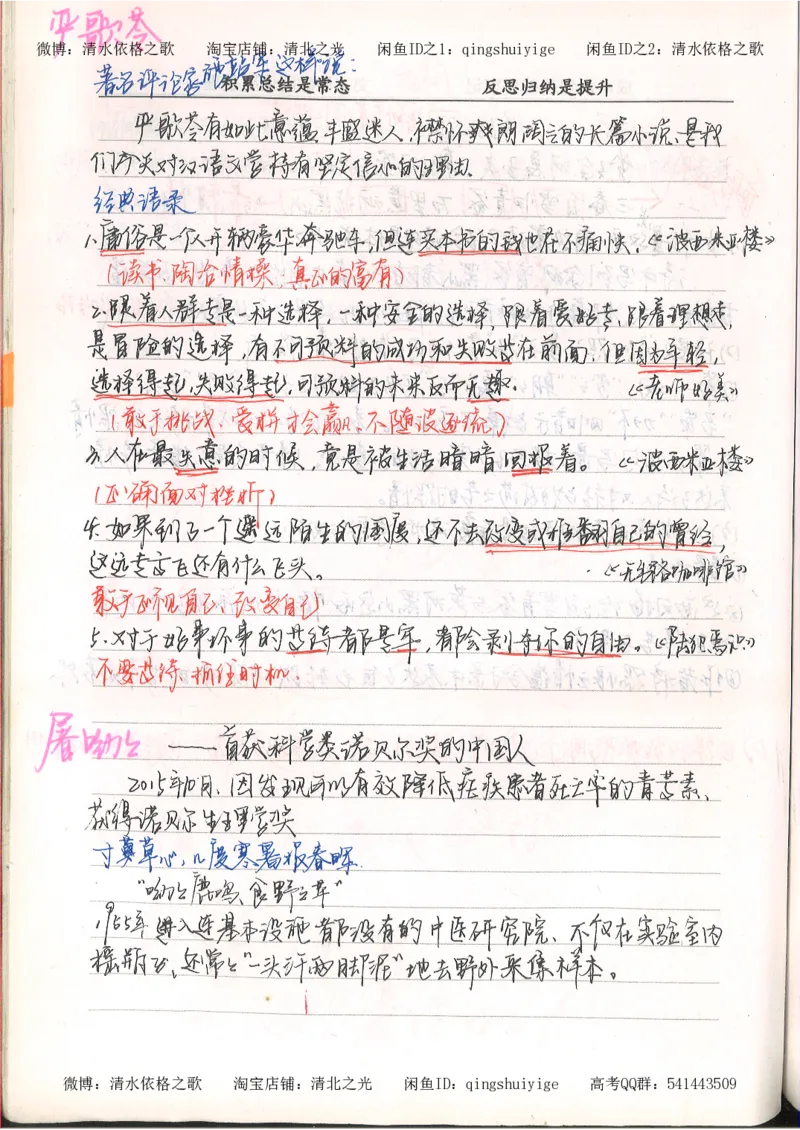 严歌苓
微博：清水依格之歌 淘宝店铺：清北之光 闲鱼ID之1：qingshuiyige 闲鱼ID之2：清水依格之歌
著名评论家施战军这样说：
积累总结是常态 反思归纳是提升
严歌苓有如此意蕴丰盈迷人、襟怀爽朗阔立的长篇小说，是我
们齐关对汉语文学持有坚定信心的理由。
经典语录
1.庸俗是一个人开辆豪华奔驰车，但连买本书的钱也花不痛快。《波西米亚楼》
（读书，陶冶情操，真正的富有）
2.跟着人群走是一种选择，一种安全的选择，跟着爱好走、跟着理想走，
是冒险的选择，有不可预料的成功和失败等在前面。但因为年轻，
选择得起，失败得起，可预料的未来反而无趣。 《老师好美》
（敢于挑战，爱拼才会赢，不随波逐流）
3.人在最失意的时候，竟是被生活暗暗回报着。《波西米亚楼》
（正确面对挫折）
4.如果到了一个遥远陌生的国度，还不去改变或推翻自己的曾经，
这远走高飞还有什么飞头。 《无出路咖啡馆》
敢于正视自己，改变自己
5.对于好事坏事的等待都是牢，都会剥夺你的自由。《陆犯焉识》
不要等待，抓住时机.
屠呦呦 ——首获科学类诺贝尔奖的中国人
2015年10月，因发现可以有效降低疟疾患者死亡率的青蒿素、
获得诺贝尔生理学奖
寸草心，几度寒暑报春晖.
“呦呦鹿鸣，食野之苹”
1955年进入连基本设施都没有的中医研究院、不仅在实验室内
摇瓶子，还常常“一头汗两脚泥”地去野外采集样本。
微博：清水依格之歌 淘宝店铺：清北之光 闲鱼ID：qingshuiyige 高考QQ群：541443509